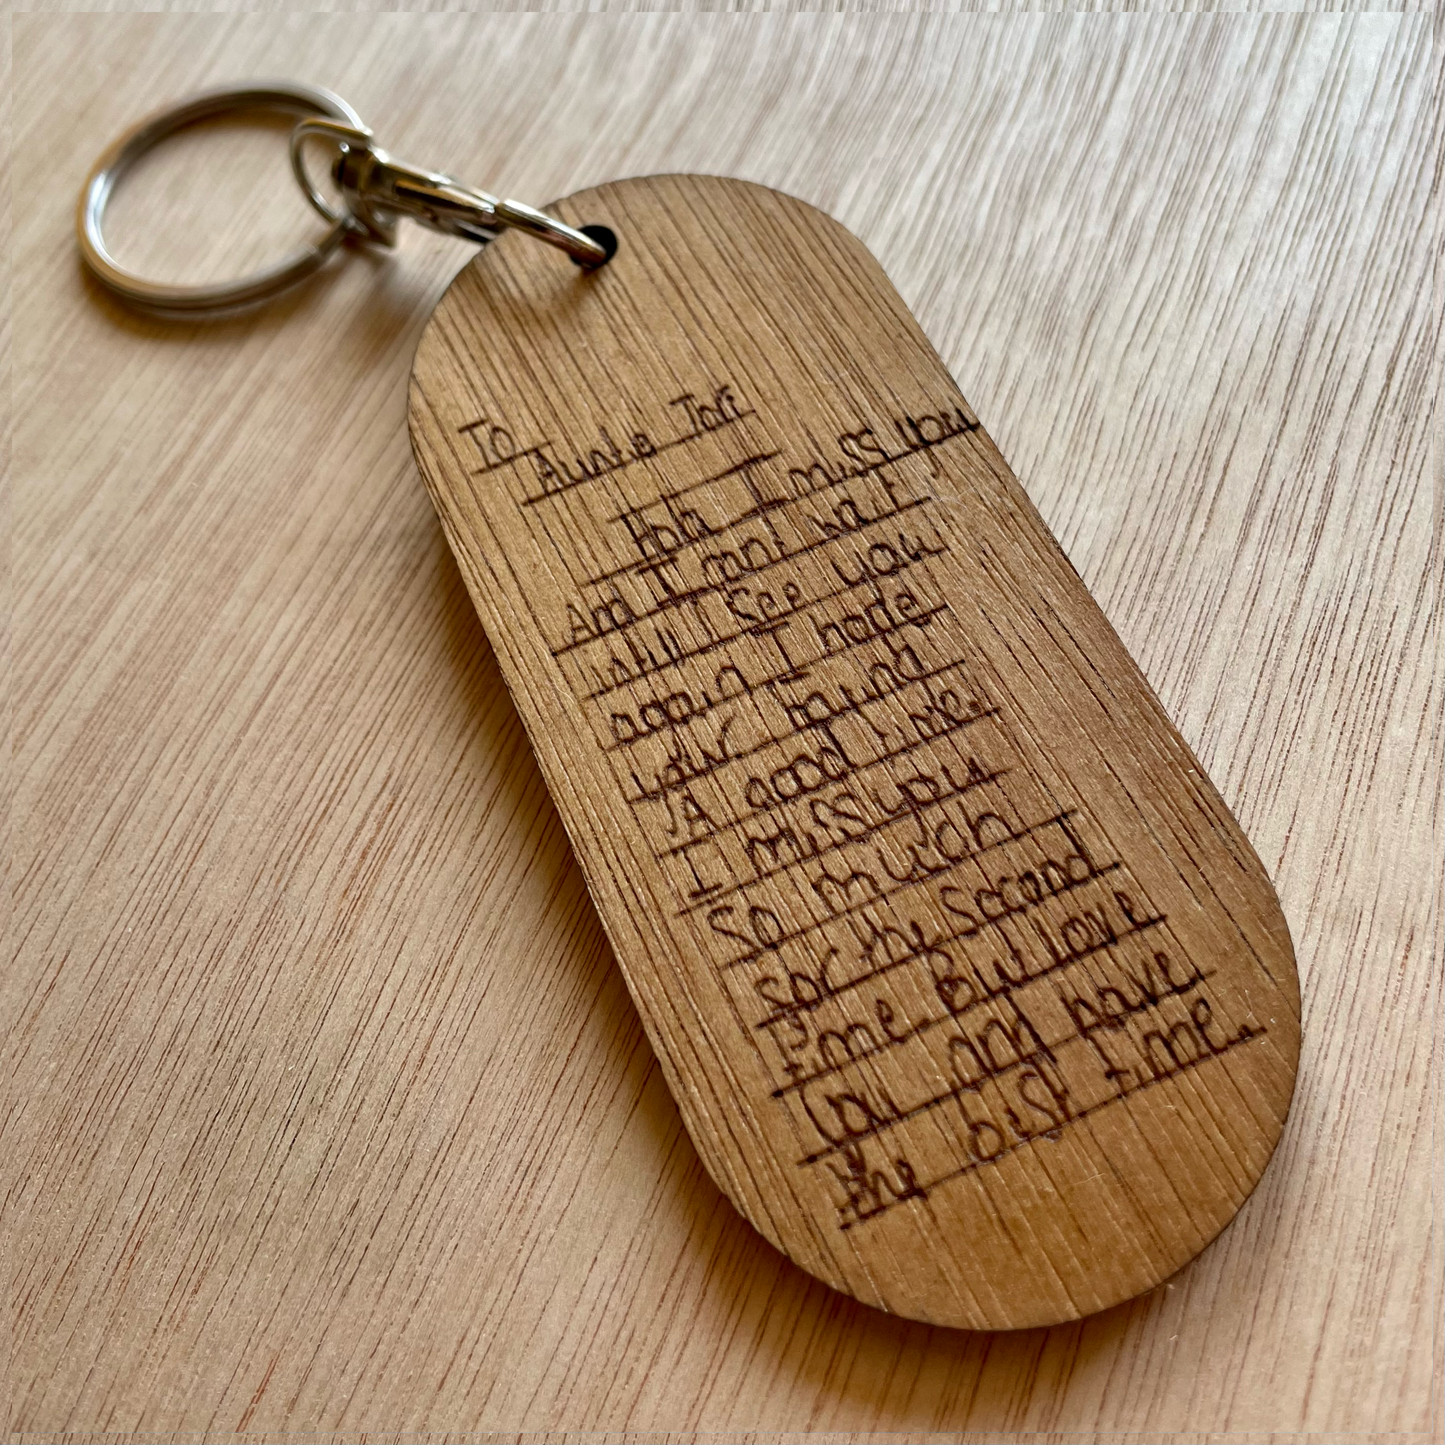 To
Auntie Tori
Hola I miss you
And I cant wait
untill I see you
again I hope
your having
A good time.
I miss you
So much
for the second
time. But love
you and have
the best time.